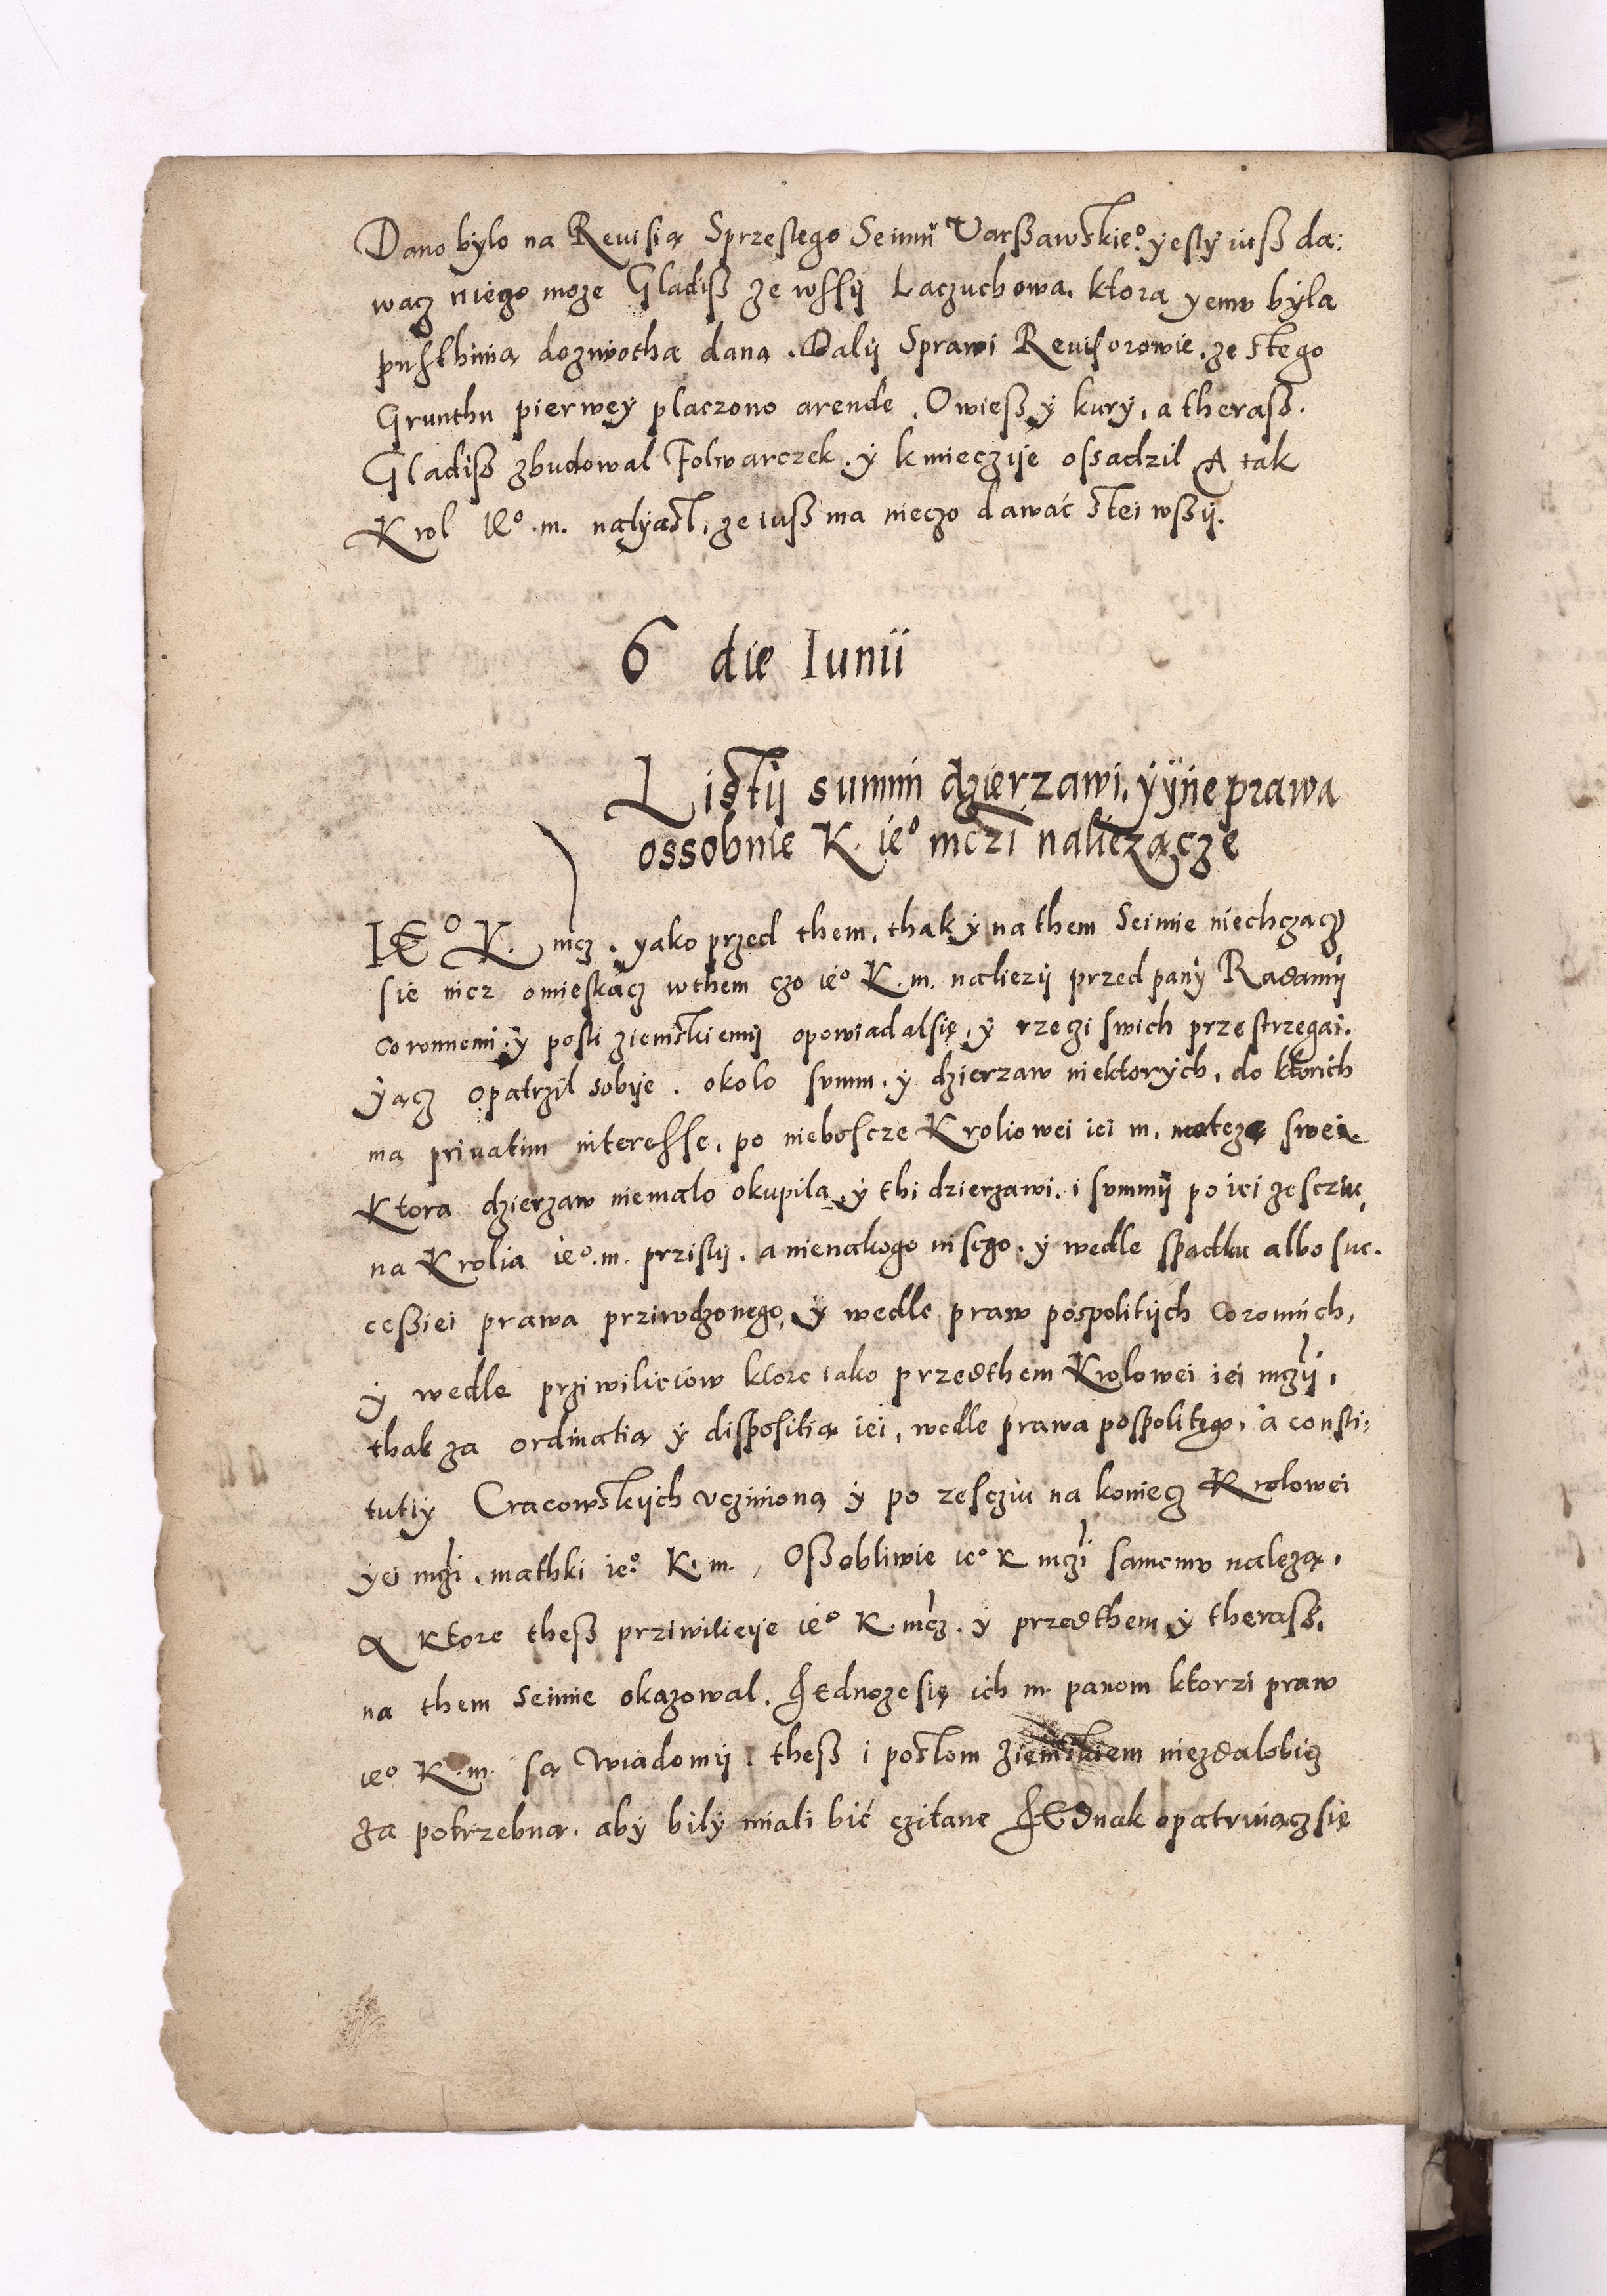 Dano bylo na Revisią Sprzeslego Seimu Varßawskieº. yesly iuß da:
wacz niego moze Gladiß ze wssij Laczuchowa. ktora yemv była
pusthinią dozywotha dana. Dalij Sprawi Revisorowie. ze stego
Grunthu pierwey placzono arende, Owieß y kury, a theraß.
Gladiß zbudowal Folwarczek. y kmieczije ossadzil A tak
Krol IEº .m. nalyasł, ze iuß ma nieczo dawać stei wßij.
6 die Iunii
Listij summ dzierzawi. y yne prawa
ossobnie K. ieº mczi naliezącze
IEº K. mcz. yako przed them, thak y na them Seimie niechczącz
sie nicz omieskacz wthem czo ieº K. m. naliezij przed pany Radamij
coronnemi y posli ziemskiemij opowiadalsię, y rzeczi swich przestrzegai.
yącz opatrzil sobije. okolo svmm. y dzierzaw niektorych, do ktorich
ma privatim interesse, po nieboscze Kroliowei iei m. matcze swei
Ktora dzierzaw niemalo okupila, y thi dzierzawi. i svmmij po iei zescziu,
na Krolia ieº. m. przislij. a nienakogo inszego. y wedle spadku albo suc.
ceßiei prawa przirodzonego, y wedle praw pospolitijch coronnych,
y wedle prziwilieiow ktore iako przedthem Krolowei iei mczij,
thak za ordinatią y dispositią iei, wedle prawa pospolitego, a consti:
tutiy Cracowskijch vczinioną y po zescziu na koniecz Krolowei
yei mczi. mathki ieº. K. m., Oßobliwie ieº K mczi samemv należą,
A ktore theß prziwilieije ieº K. mcz. y przedthem y theraß,
na them Seimie okazowal. Jednoze się ich m. panom ktorzi praw
ieº K. m. są wiadomij. theß i posłom ziemskiem niezdalobiez
za potrzebną. aby bily miali bić czitane JEdnak opatruiączsię